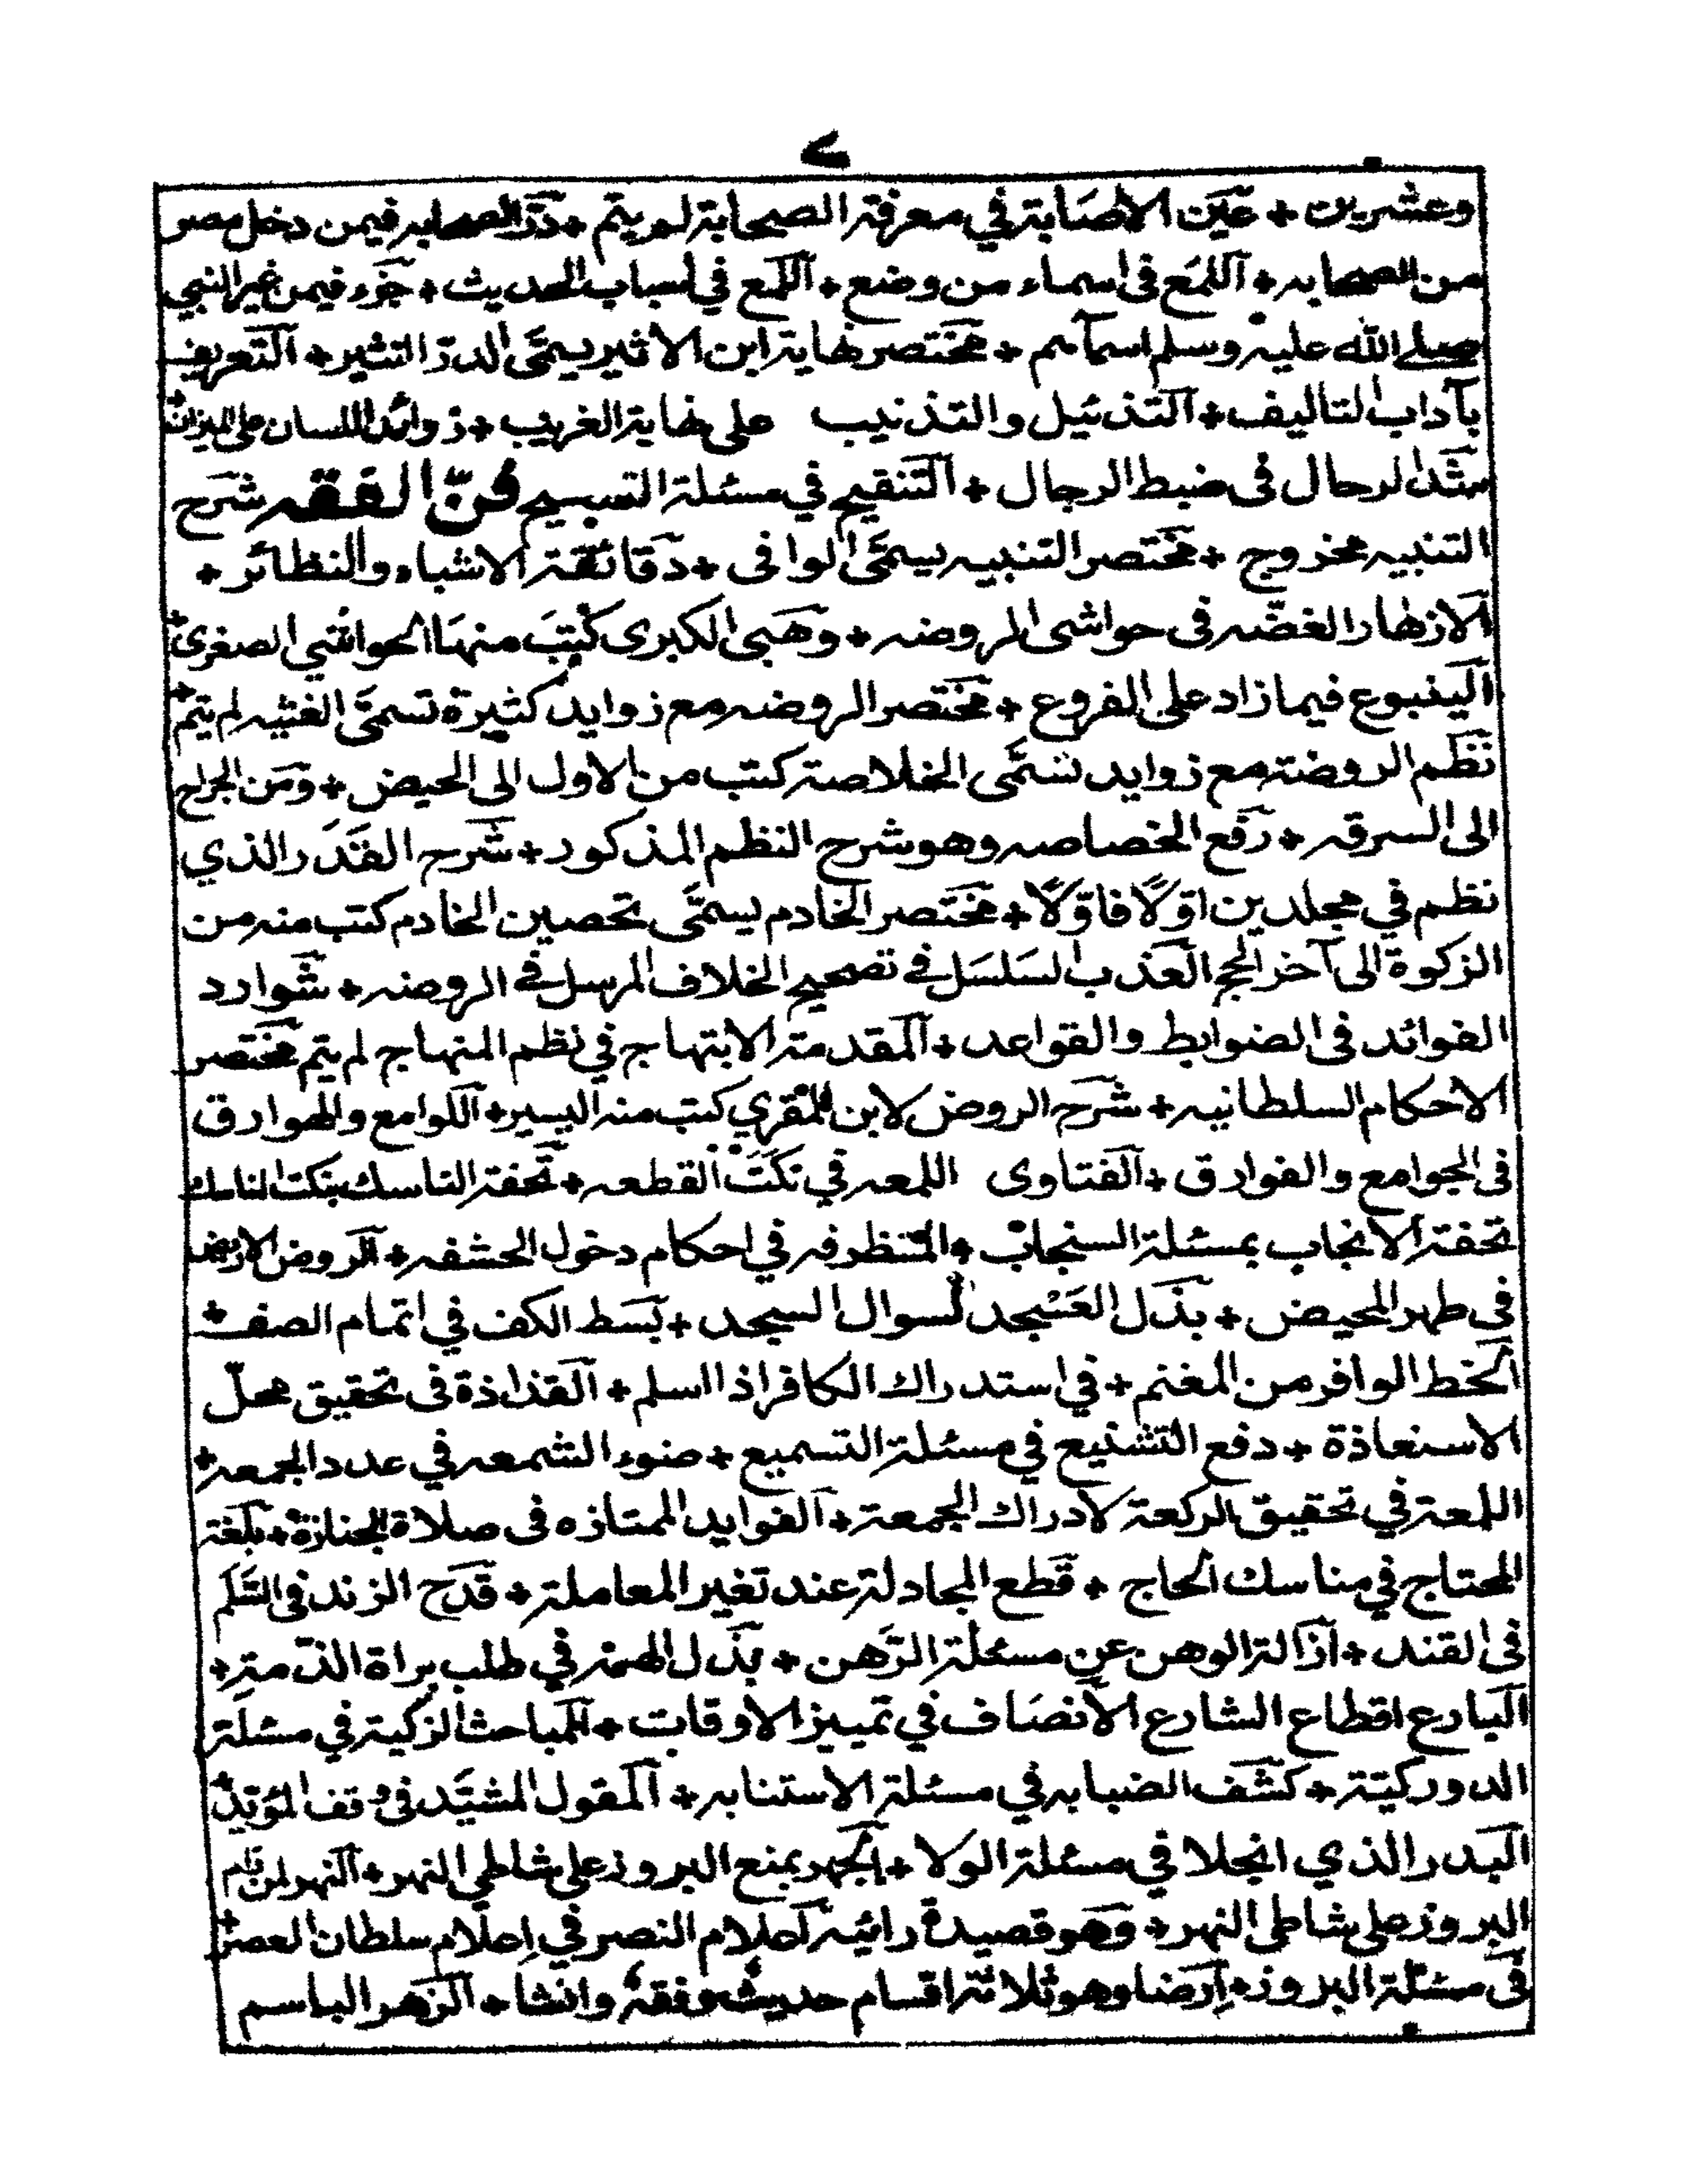 ٧
وعشرين + عَين الاصَابة في معرفة الصحابة لم يتم + دَرّ الصحابه فيمن دخل مصر
من الصحابه + آللمَع فى اسماء من وضع + آللمع في اسباب الحديث + جَزء فيمن غير النبي
صلے الله عليه وسلم اسمآءهم + مَختصر نهاية ابن الاثير يسمَّى الدرّ النثير + آلتَعريف
بآداب التاليف + آلتَذئيل والتذنيب على نهاية الغريب + زوائد اللسان على الميزان +
شَدّ الرحال فى ضبط الرجال + آلتَنقيح في مسئلة التسبيح فَنّ الفقه شَرح
التنبيه ممزوج + مَختصر التنبيه يسمَّى الوافى + دَقائقة الاشباه والنظائر +
آلازهار الغضّه فى حواشى الروضه + وهَبى الكبرى كُتِبَ منهَا الحواشي الصغرى +
آليَنبوع فيما زاد على الفروع + مَختصر الروضه مع زوايد كثيرة تسمَّى الغنيه لم يتم +
نَظم الروضة مع زوايد تسَمَّى الخلاصة كتب من الاول الى الحيض + ومَن الجراح
الى السرقه + رَفع الخصاصه وهو شرح النظم المذكور + شَرح القَدَر الذي
نظم في مجلدين اوّلًا فاوّلًا + مَختصر الخادم يسمَّى تحصين الخادم كتب منه من
الزكوة الى آخر الحج العَذب السَلسَل فے تصحيح الخلاف المرسل فے الروضه + شَوارد
الفوائد فى الضوابط والقواعد + آلمَقدمة الابتهاج في نظم المنهاج لم يتم مَختصر
الاحكام السلطانيه + شَرح الروض لابن المُقري كتب منه اليسير + آللوامع والهوارق
فى الجوامع والفوارق + آلفَتاوى اللمعه في نَكَتَ القطعه + تَحفة الناسك بنكت المناسك
تحفة الانجاب بمسئلة السنجاب + المُتنظرفه في احكام دخول الحشفه + آلروض الاريض
فى طهر المحيض + بذَل العَسْجد لسوال المسجد + بَسَط الكف في اتمام الصف +
آلحَظ الوافر من المغنم + في استدراك الكافر اذا اسلم + آلقذاذة فى تحقيق محلّ
الاستعاذة + دفع التشنيع في مسئلة التسميع + ضوء الشمعه في عدد الجمعة +
اللمعة في تحقيق الركعة لادراك الجمعة + آلفوايد الممتازه فى صلاة الجنازة + بَلغة
المحتاج في مناسك الحاج + قَطع المجادلة عند تغير المعاملة + قَدح الزند فى السَّلَم
فى القند + اَزالة الوهن عن مسئلة الرَّهن + بَذل الهمة في طلب براة الذمة +
آلبَارع اقطاع الشارع الاَنصَاف في تمييز الاوقات + آلمَباحث الزكية في مسئلة
الدوركيّة + كَشَف الضبابه في مسئلة الاستنابه + آلمقول المشيَّد فى وقف المؤيّد +
البَدر الذي انجلا في مسئلة الولا + آلجَهر بمنع البروز على شاطي النهر + آلنهر لمن رام
البروز على شاطى النهر + وَهو قصيدة رائيه اَعلام النصر في اِعلام سلطان العصر +
فى مسئلة البروز + اِيضا وهو ثلاثة اقسام حديث وفقه وانشا + آلزَهر الباسم